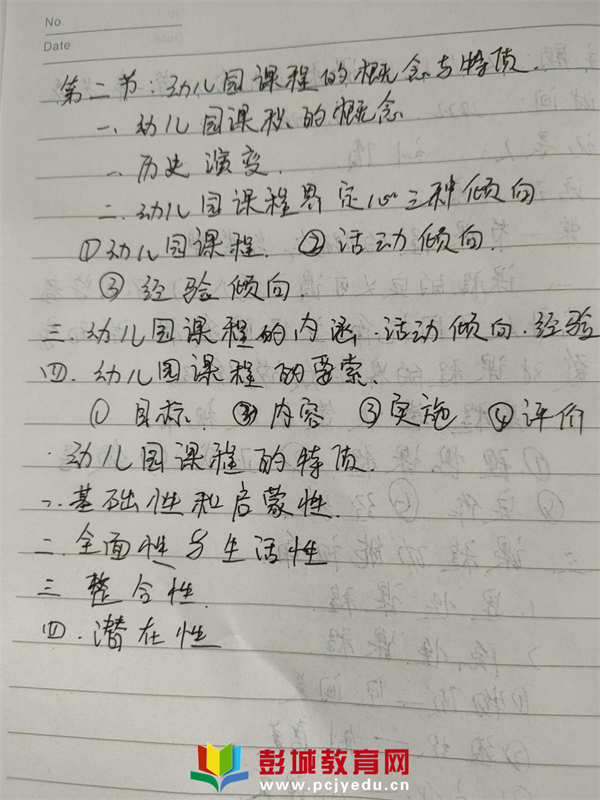 No
Date
第二节:幼儿园课程的概念与特质.
一、幼儿园课程的概念
一、历史演变.
二.幼儿园课程界定的三种倾向
①幼儿园课程. ②活动倾向.
③经验倾向.
三.幼儿园课程的内涵.活动倾向.经验
四.幼儿园课程的要素.
①目标. ②内容 ③实施 ④评价
幼儿园课程的特质.
一.基础性和启蒙性.
二.全面性与生活性
三 整合性.
四.潜在性
彭城教育网
www.pcjyedu.cn